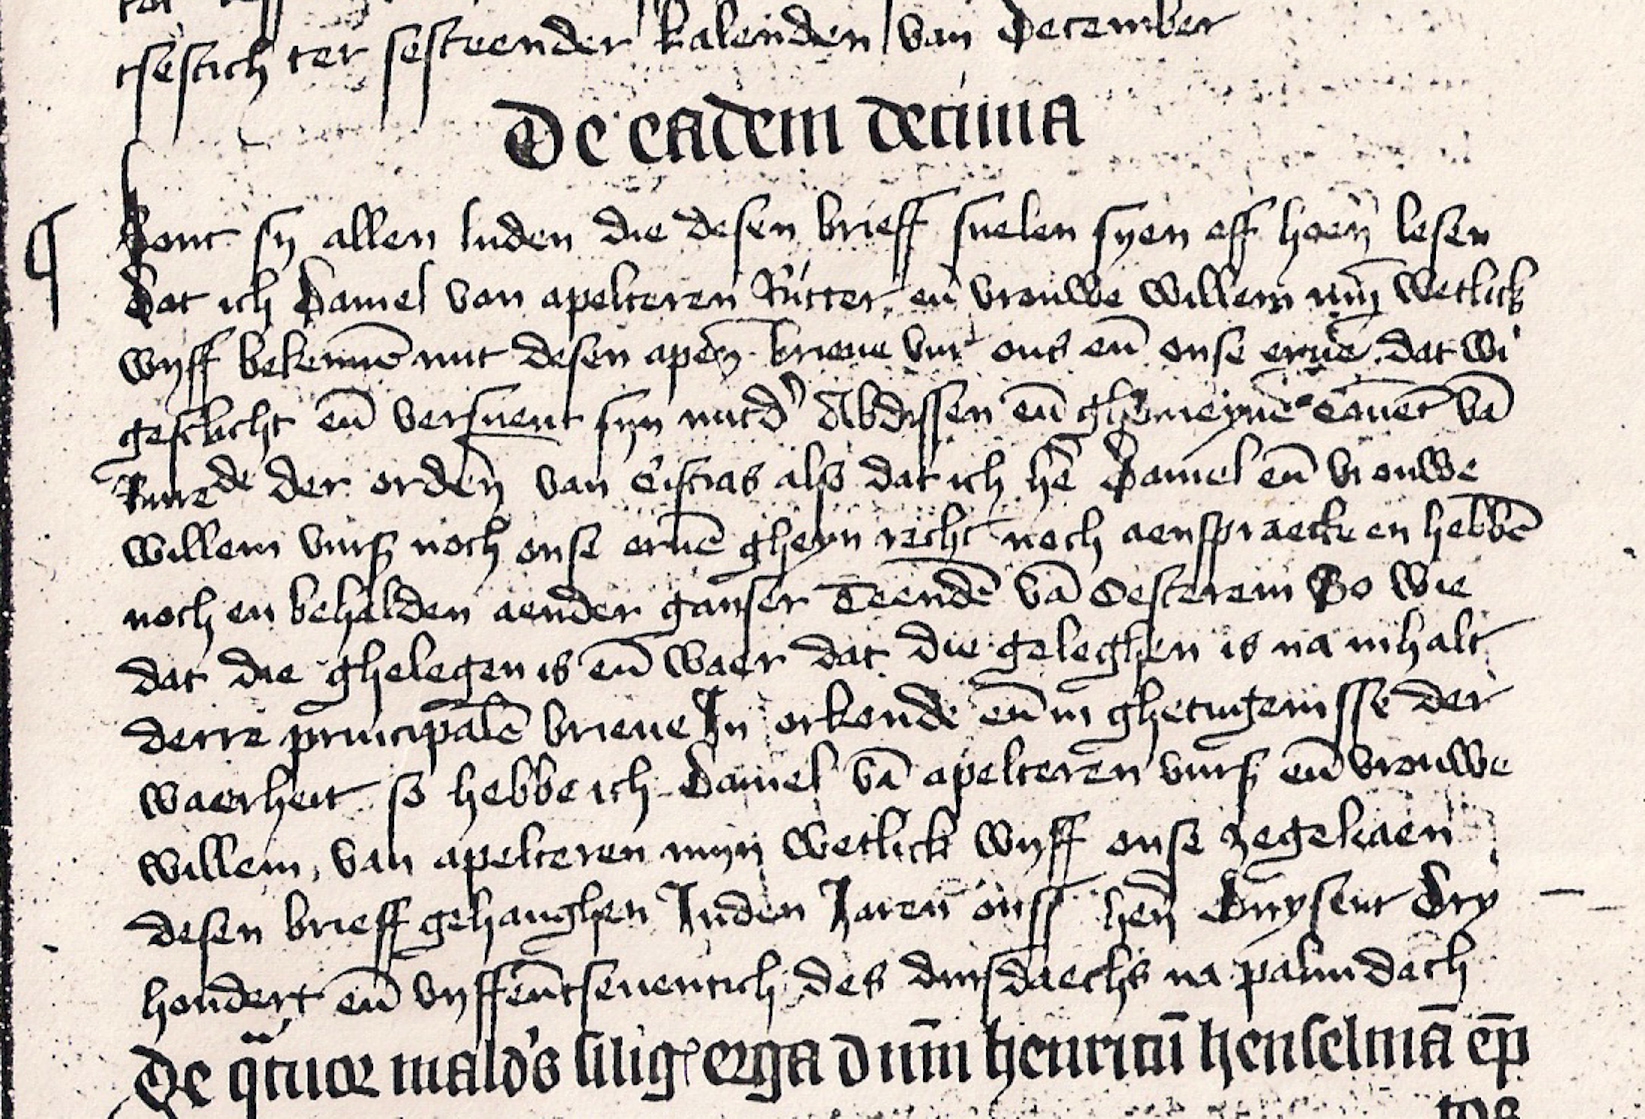 tsestich ter sesteender kalenden van December
De eadem decima
¶ Kont sy allen luden die desen brieff suelen syen off hoerē lesen
Dat ich Daniel van apelteren Ritter eñ vrouwe willem mijn wetlick
wyff bekennē mit desen apenē brieue vur ons eñ onse eruē dat wi
geslicht eñ versuent syn mit d' Abdissen eñ ghemeynē Cōuēt vā
der ordēn van Cistias also dat ich hē Daniel eñ vrouwe
willem vurß noch onse eruē gheyn recht noch aenspraecke en hebbē
noch en behalden aender ganser Teendē vā Oesterem So wie
dat die ghelegen is eñ waer dat die geleghen is na inhalt
derre principalē brieue In orkonde eñ in ghetugenisse der
waerheit so hebbe ich Daniel vā apelteren vurß eñ vrouwe
willem, van apelteren mijn wetlick wyff onse zegele aen
desen brieff gehanghen Inden Jaren onss herē Duysent Dry
hondert eñ vyffeñtseuentich des dinsdaechs na palmdach
De q̄tuor mald's silig' erga dn̄m henricū henselmā ep̄